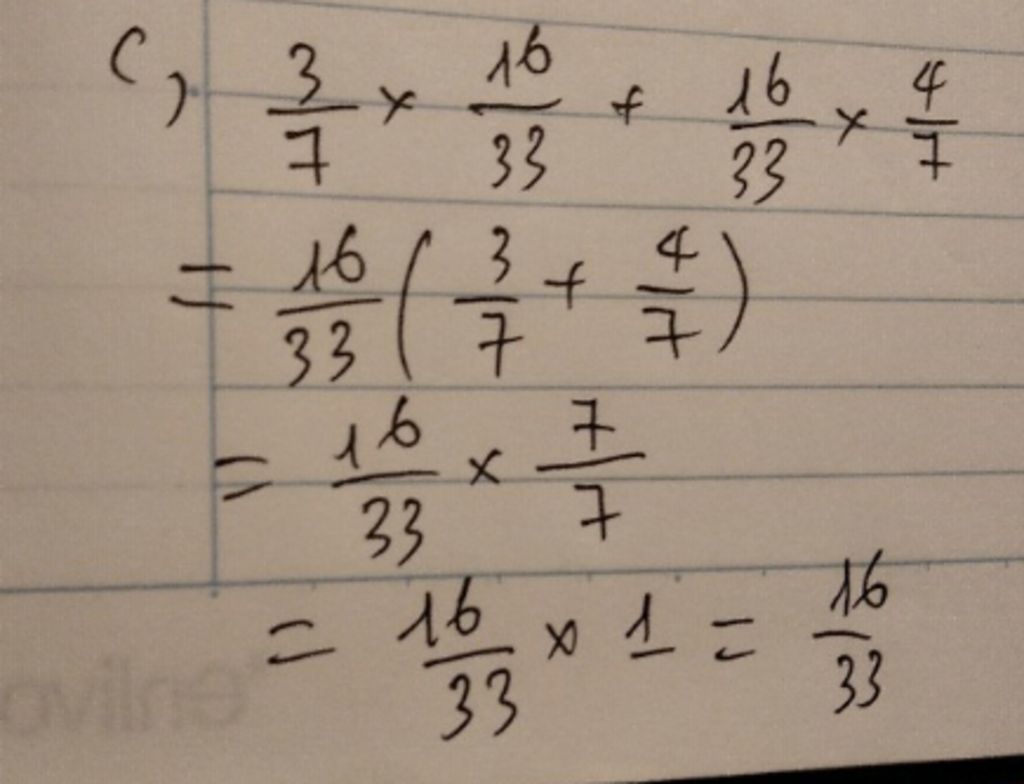 c, 3/7 × 16/33 + 16/33 × 4/7
= 16/33 ( 3/7 + 4/7 )
= 16/33 × 7/7
= 16/33 × 1 = 16/33